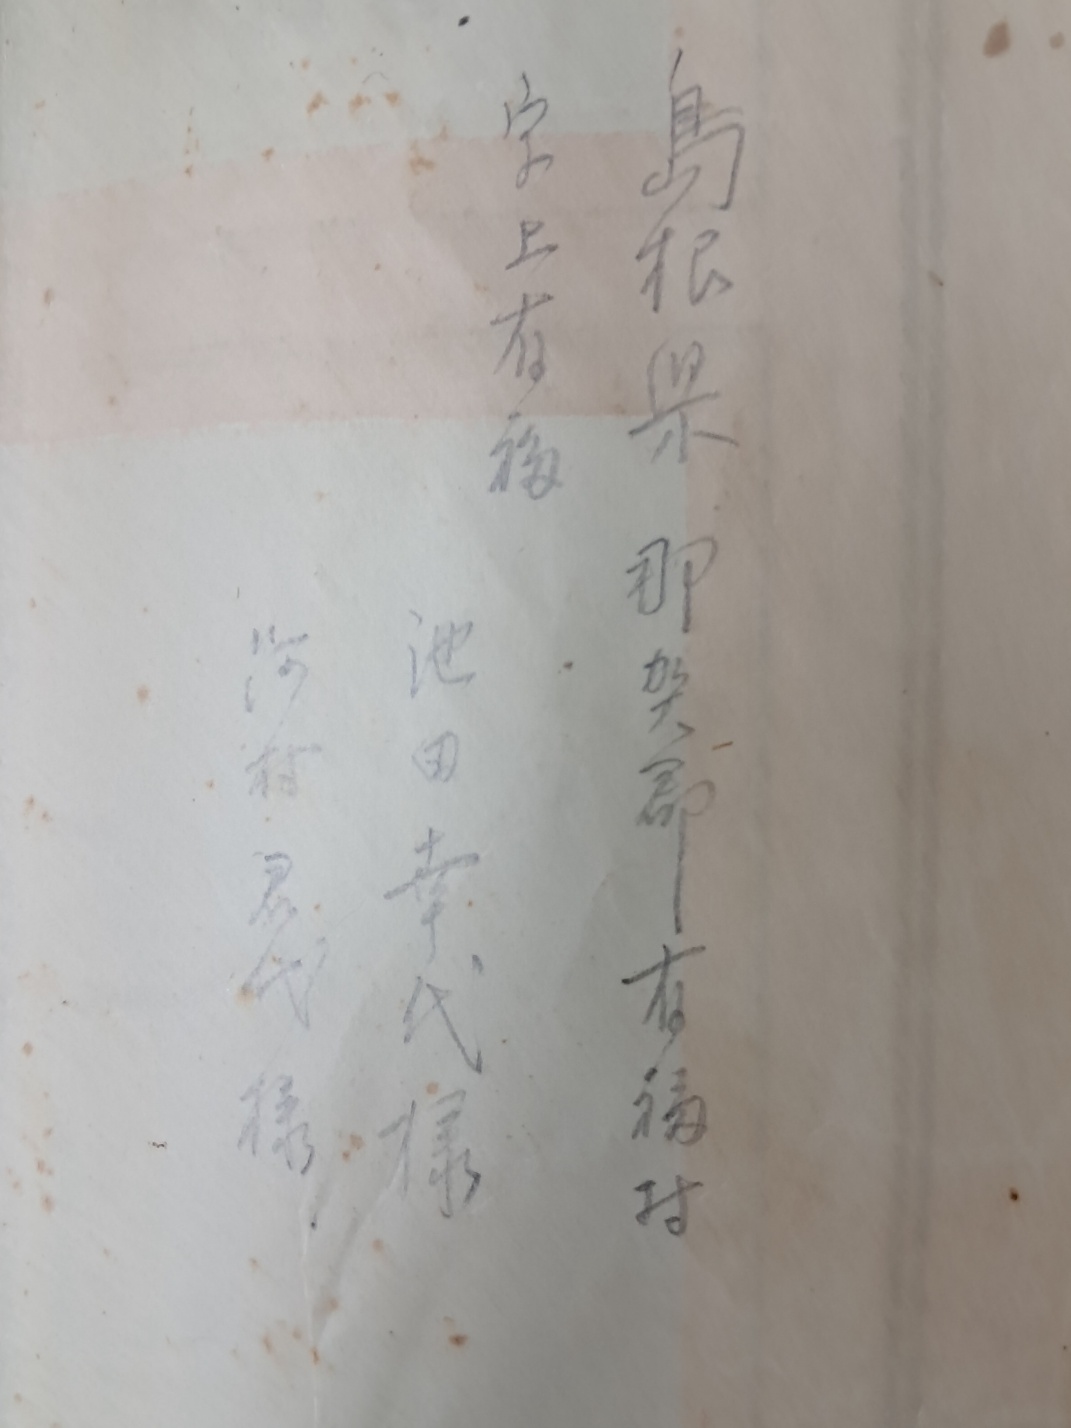 島根県 那賀郡有福村
字上有福
池田幸代様
河村君代様